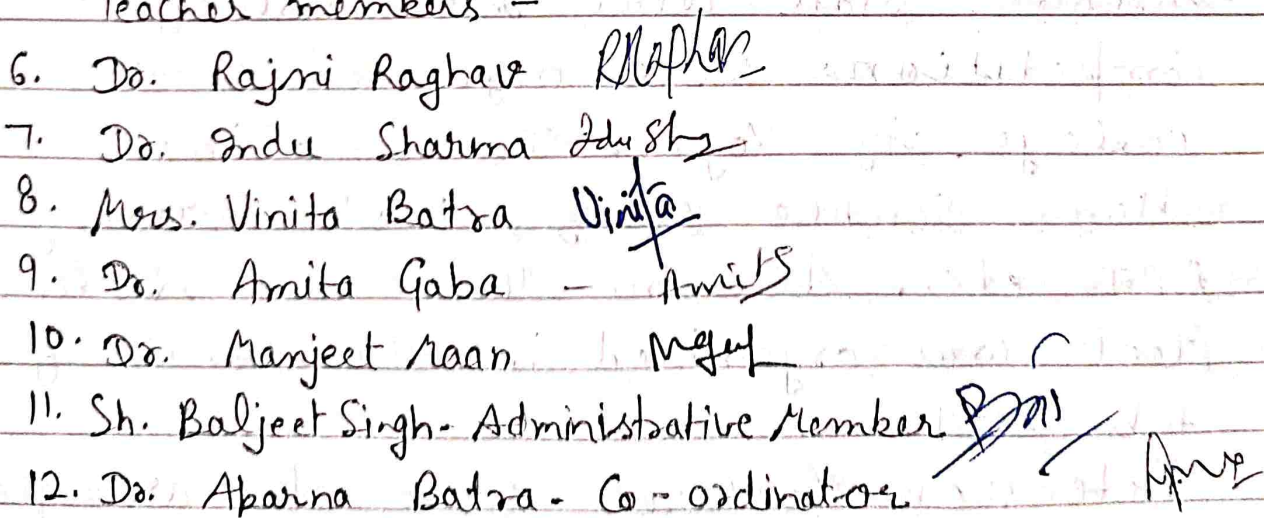 Teacher members -
6. Dr. Rajni Raghav
7. Dr. Indu Sharma
8. Mrs. Vinita Batra Vinita
9. Dr. Amita Gaba -
10. Dr. Manjeet Maan
11. Sh. Baljeet Singh - Administrative Member
12. Dr. Aparna Batra - Co-ordinator